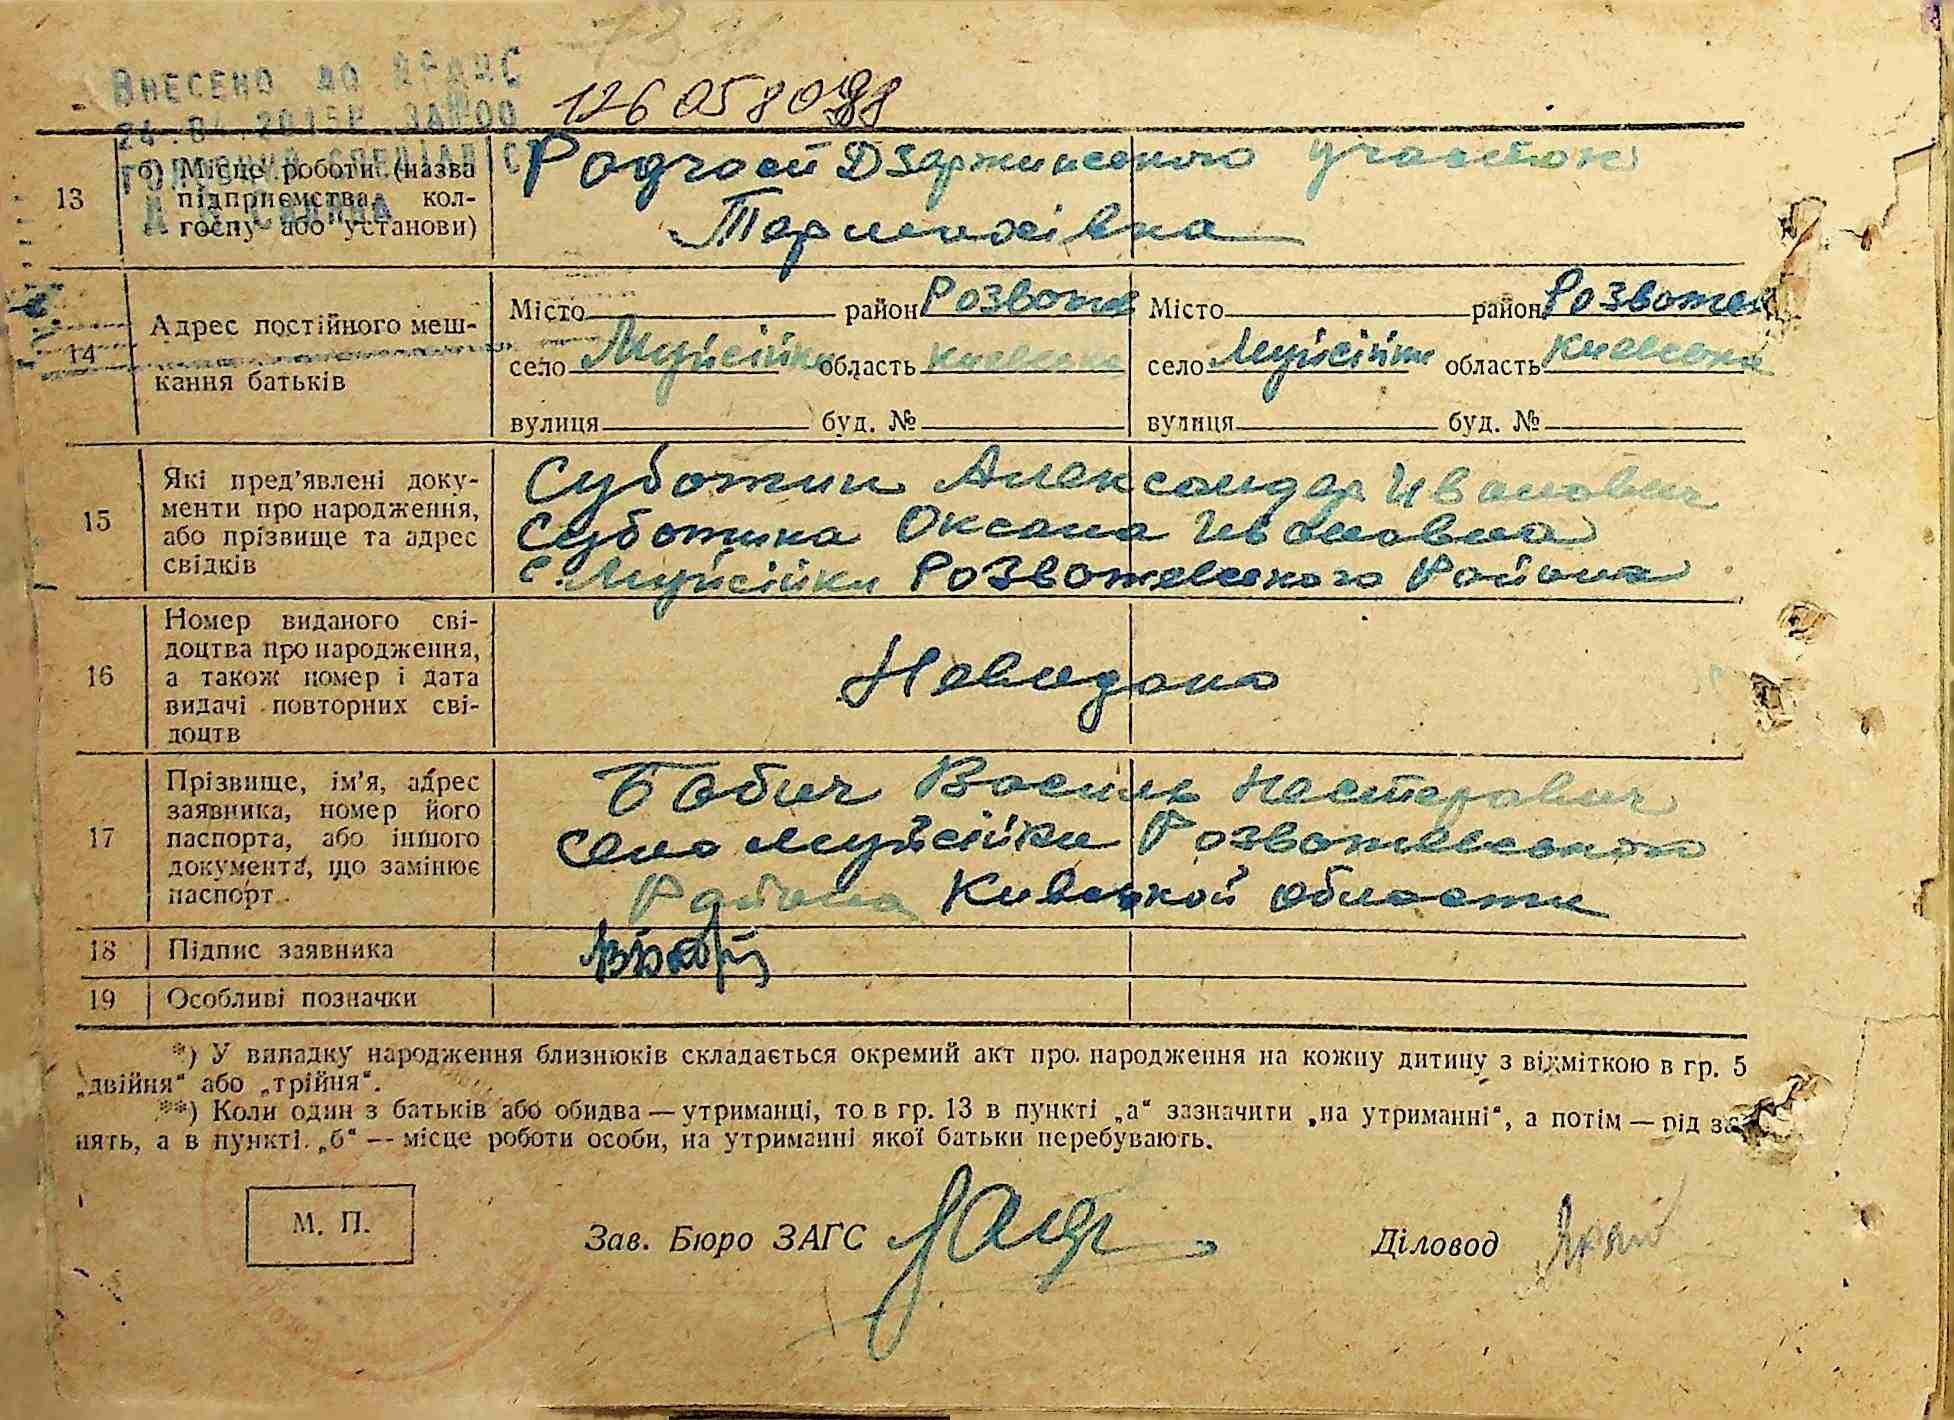 ВНЕСЕНО ДО ДРАЦС
13
б) Місце роботи (назва
підприємства, кол-
госпу або установи)
Дзержинского участок
Термахівка
14
Адрес постійного меш-
кання батьків
Місто район Розваже
село Муйсійки область киевська
вулиця буд. №
Місто район Розважев
село Муйсійки область Киевська
вулиця буд. №
15
Які пред'явлені доку-
менти про народження,
або прізвище та адрес
свідків
Суботин Александер Иванович
Суботина Оксана Ивановна
с. Муйсійки Розважевського Района
16
Номер виданого сві-
доцтва про народження,
а також номер і дата
видачі повторних сві-
доцтв
Невидано
17
Прізвище, ім'я, адрес
заявника, номер його
паспорта, або іншого
документа, що замінює
паспорт
Бабич Василь Нестерович
село Муйсійки Розважевського
Района Кивської области
18
Підпис заявника
19
Особливі позначки
*) У випадку народження близнюків складається окремий акт про народження на кожну дитину з відміткою в гр. 5
„двійня“ або „трійня“.
**) Коли один з батьків або обидва — утриманці, то в гр. 13 в пункті „а“ зазначити „на утриманні“, а потім — рід за-
нять, а в пункті „б“ — місце роботи особи, на утриманні якої батьки перебувають.
М. П.
Зав. Бюро ЗАГС
Діловод